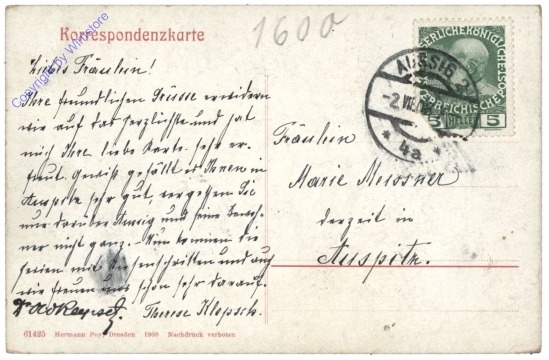 1600
Korrespondenzkarte
Copyright by Winstore
Liebes Fräulein!
Ihre freundlichen Grüsse erwidern
wir auf das herzlichste und hat
mich Ihre liebe Karte sehr er-
freut. Gewiß gefällt es Ihnen in
Auspitz sehr gut, vergessen Sie
nur darüber Aussig und seine Bewoh-
ner nicht ganz. - Nun kommen die
Ferien mit und auf
wir freuen uns schon sehr darauf.
Therese Klepsch.
AUSSIG
-2.VII
* 4a *
5 HELLER 5
Fräulein
Marie Meissner
derzeit in
Auspitz.
61425 Hermann Poy, Dresden 1908 Nachdruck verboten